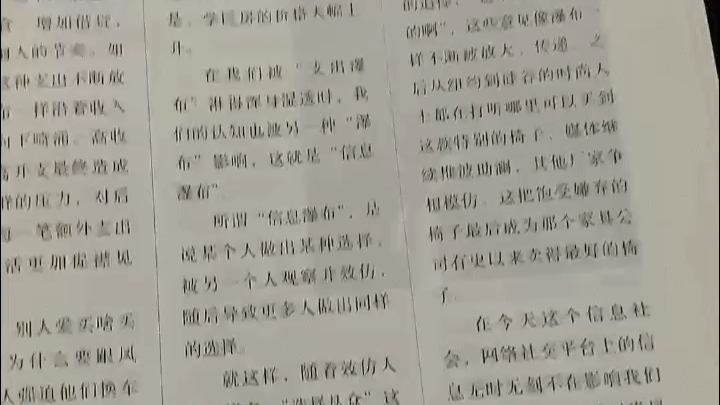 增加借贷，
别人的节奏。如
这种支出不断放
布一样沿着收入
向下喷涌。高收
高开支最终造成
样的压力，对后
每一笔额外支出
活更加捉襟见
别人爱买啥买
为什么要跟风
人强迫他们换车
是，学区房的价格大幅上
升。
在我们被“支出瀑
布”淋得浑身湿透时，我
们的认知也被另一种“瀑
布”影响，这就是“信息
瀑布”。
所谓“信息瀑布”，是
说某个人做出某种选择，
被另一个人观察并效仿，
随后导致更多人做出同样
的选择。
就这样，随着效仿人
的啊”，这些意见像瀑布一
样不断被放大、传递。之
后从纽约到硅谷的时尚人
士都在打听哪里可以买到
这款特别的椅子，媒体继
续推波助澜，其他厂家争
相模仿。这把饱受嫌弃的
椅子最后成为那个家具公
司有史以来卖得最好的椅
子。
在今天这个信息社
会，网络社交平台上的信
息无时无刻不在影响我们